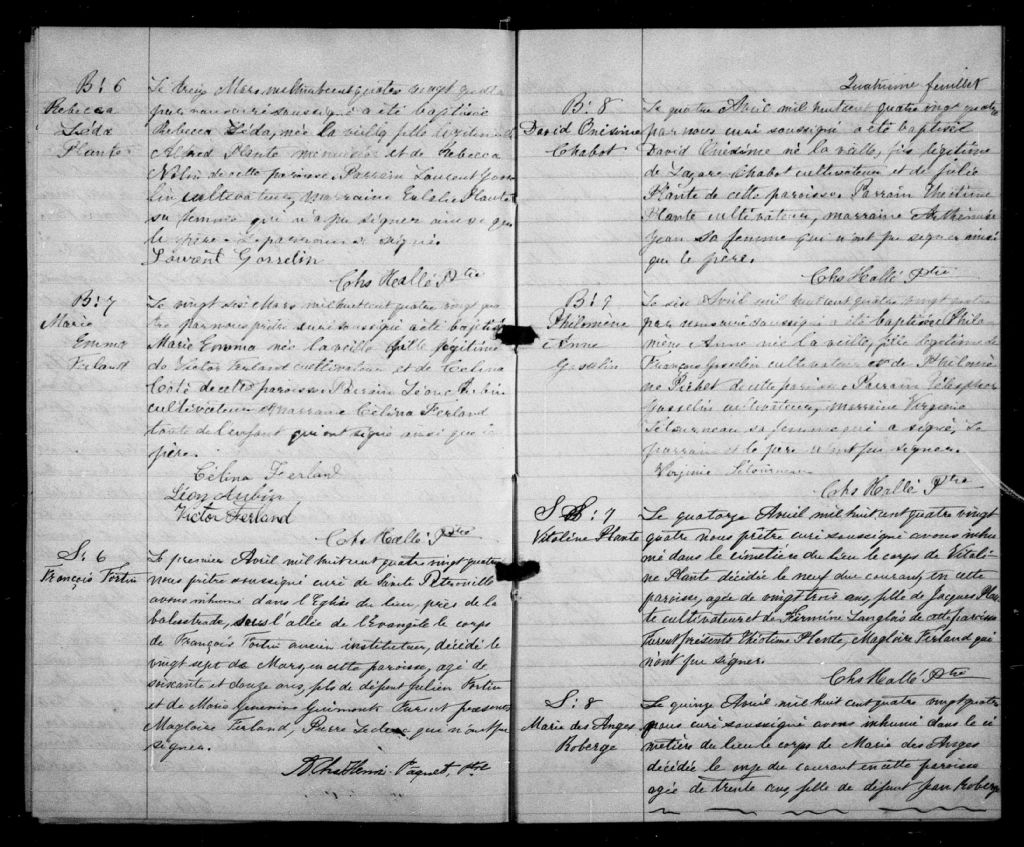 B: 6
Rebecca
Léda
Plante
Le treize Mars mil huit cent quatre vingt quatre
par nous curé soussigné a été baptisée
Rebecca Léda, née la veille, fille légitime de
Alfred Plante menuisier et de Rebecca
Nolin de cette paroisse. Parrain Laurent Gosse
lin cultivateur, marraine Eulalie Plante
sa femme qui n'a pu signer ainsi que
le père. Le parrain a signé.
Laurent Gosselin
Chs Hallé Ptre
B: 7
Marie
Emma
Ferland
Le vingt six Mars mil huit cent quatre vingt qua
tre par nous prêtre curé soussigné a été baptisée
Marie Emma née la veille fille légitime
de Victor Ferland cultivateur et de Célina
Côté de cette paroisse. Parrain Léon Aubin
cultivateur marraine Célina Ferland
tante de l'enfant qui ont signé ainsi que le
père.
Célina Ferland
Léon Aubin
Victor Ferland
Chs Hallé Ptre
S: 6
François Fortin
Le premier Avril mil huit cent quatre vingt quatre
nous prêtre soussigné curé de Sainte Pétronille
avons inhumé dans l'Eglise du lieu, près de la
balustrade, sous l'allée de l'évangile le corps
de François Fortin ancien instituteur, décédé le
vingt sept de Mars, en cette paroisse, agé de
soixante et douze ans, fils de défunt Julien Fortin
et de Marie Guimont. Furent présents
Magloire Ferland, Pierre Leclerc qui n'ont pu
signer.
Henri Paquet, Ptre
Quatrième feuillet
B: 8
David Onésime
Chabot
Le quatre Avril mil huit cent quatre vingt quatre
par nous curé soussigné a été baptisé
David Onésime né la veille, fils légitime
de Lazare Chabot cultivateur et de Julie
Plante de cette paroisse. Parrain Théotime
Plante cultivateur, marraine Arthémise
Jean sa femme qui n'ont pu signer ainsi
que le père.
Chs Hallé Ptre
B: 9
Philomène
Anne
Gosselin
Le six Avril mil huit cent quatre vingt quatre
par nous curé soussigné a été baptisée Philo-
mène Anne née la veille, fille légitime de
François Gosselin cultivateur et de Philomè
ne Pichet de cette paroisse. Parrain Télesphore
Gosselin cultivateur, marraine Virginie
Létourneau sa femme qui a signé, le
parrain et le père n'ont pu signer.
Virginie Létourneau
Chs Hallé Ptre
S: 7
Vitaline Plante
Le quatorze Avril mil huit cent quatre vingt
quatre nous prêtre curé soussigné avons inhu
mé dans le cimetière du lieu le corps de Vitali
ne Plante décédée le neuf du courant, en cette
paroisse, agée de vingt trois ans, fille de Jacques Plan
te cultivateur et de Hermine Langlois de cette paroisse
Furent présents Théotime Plante, Magloire Ferland qui
n'ont pu signer.
Chs Hallé Ptre
S: 8
Marie des Anges
Roberge
Le quinze Avril mil huit cent quatre vingt quatre
nous curé soussigné avons inhumé dans le ci
metière du lieu le corps de Marie des Anges
décédée le onze du courant en cette paroisse
agée de trente ans, fille de défunt Jean Roberge